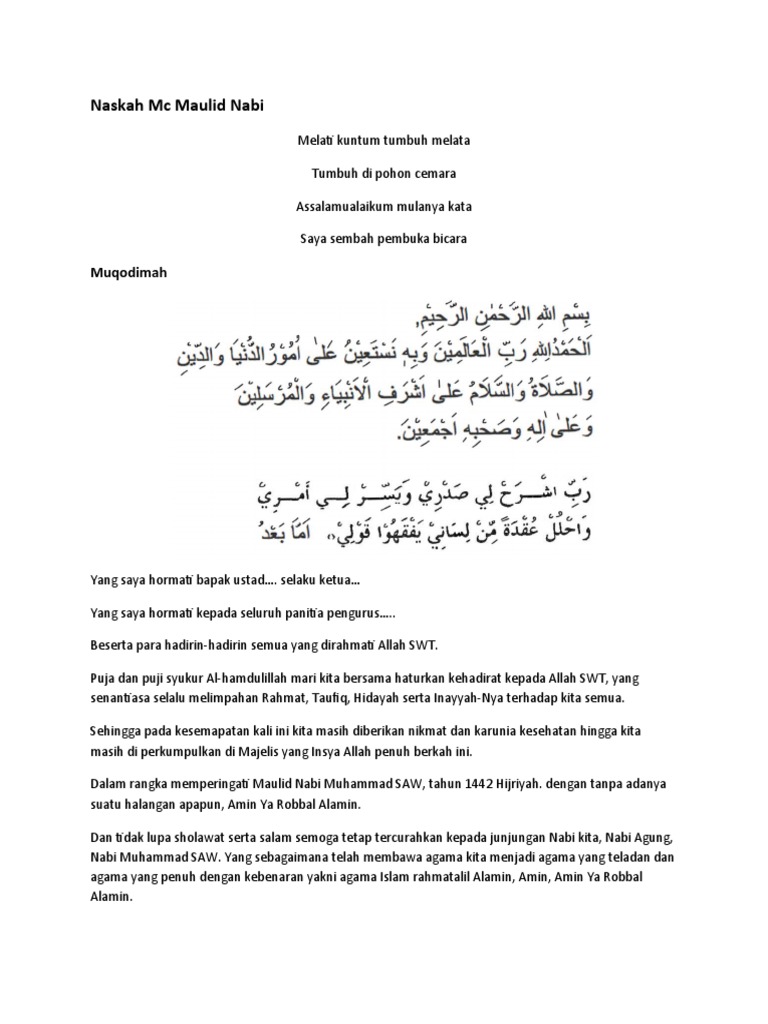 Naskah Mc Maulid Nabi
Melati kuntum tumbuh melata
Tumbuh di pohon cemara
Assalamualaikum mulanya kata
Saya sembah pembuka bicara
Muqodimah
بِسْمِ اللهِ الرَّحْمٰنِ الرَّحِيْمِ,
اَلْحَمْدُلِلّٰهِ رَبِّ الْعَالَمِيْنَ وَبِهٖ نَسْتَعِيْنُ عَلٰى اُمُوْرِ الدُّنْيَا وَالدِّيْنِ
وَالصَّلَاةُ وَالسَّلَامُ عَلٰى اَشْرَفِ الْاَنْبِيَاءِ وَالْمُرْسَلِيْنَ
وَعَلٰى اٰلِهِ وَصَحْبِهِ اَجْمَعِيْنَ.
رَبِّ اشْرَحْ لِي صَدْرِيْ وَيَسِّرْ لِي أَمْرِيْ
وَاحْلُلْ عُقْدَةً مِّنْ لِسَانِيْ يَفْقَهُوْا قَوْلِيْ، اَمَّا بَعْدُ
Yang saya hormati bapak ustad.... selaku ketua...
Yang saya hormati kepada seluruh panitia pengurus.....
Beserta para hadirin-hadirin semua yang dirahmati Allah SWT.
Puja dan puji syukur Al-hamdulillah mari kita bersama haturkan kehadirat kepada Allah SWT, yang
senantiasa selalu melimpahan Rahmat, Taufiq, Hidayah serta Inayyah-Nya terhadap kita semua.
Sehingga pada kesemapatan kali ini kita masih diberikan nikmat dan karunia kesehatan hingga kita
masih di perkumpulkan di Majelis yang Insya Allah penuh berkah ini.
Dalam rangka memperingati Maulid Nabi Muhammad SAW, tahun 1442 Hijriyah. dengan tanpa adanya
suatu halangan apapun, Amin Ya Robbal Alamin.
Dan tidak lupa sholawat serta salam semoga tetap tercurahkan kepada junjungan Nabi kita, Nabi Agung,
Nabi Muhammad SAW. Yang sebagaimana telah membawa agama kita menjadi agama yang teladan dan
agama yang penuh dengan kebenaran yakni agama Islam rahmatalil Alamin, Amin, Amin Ya Robbal
Alamin.